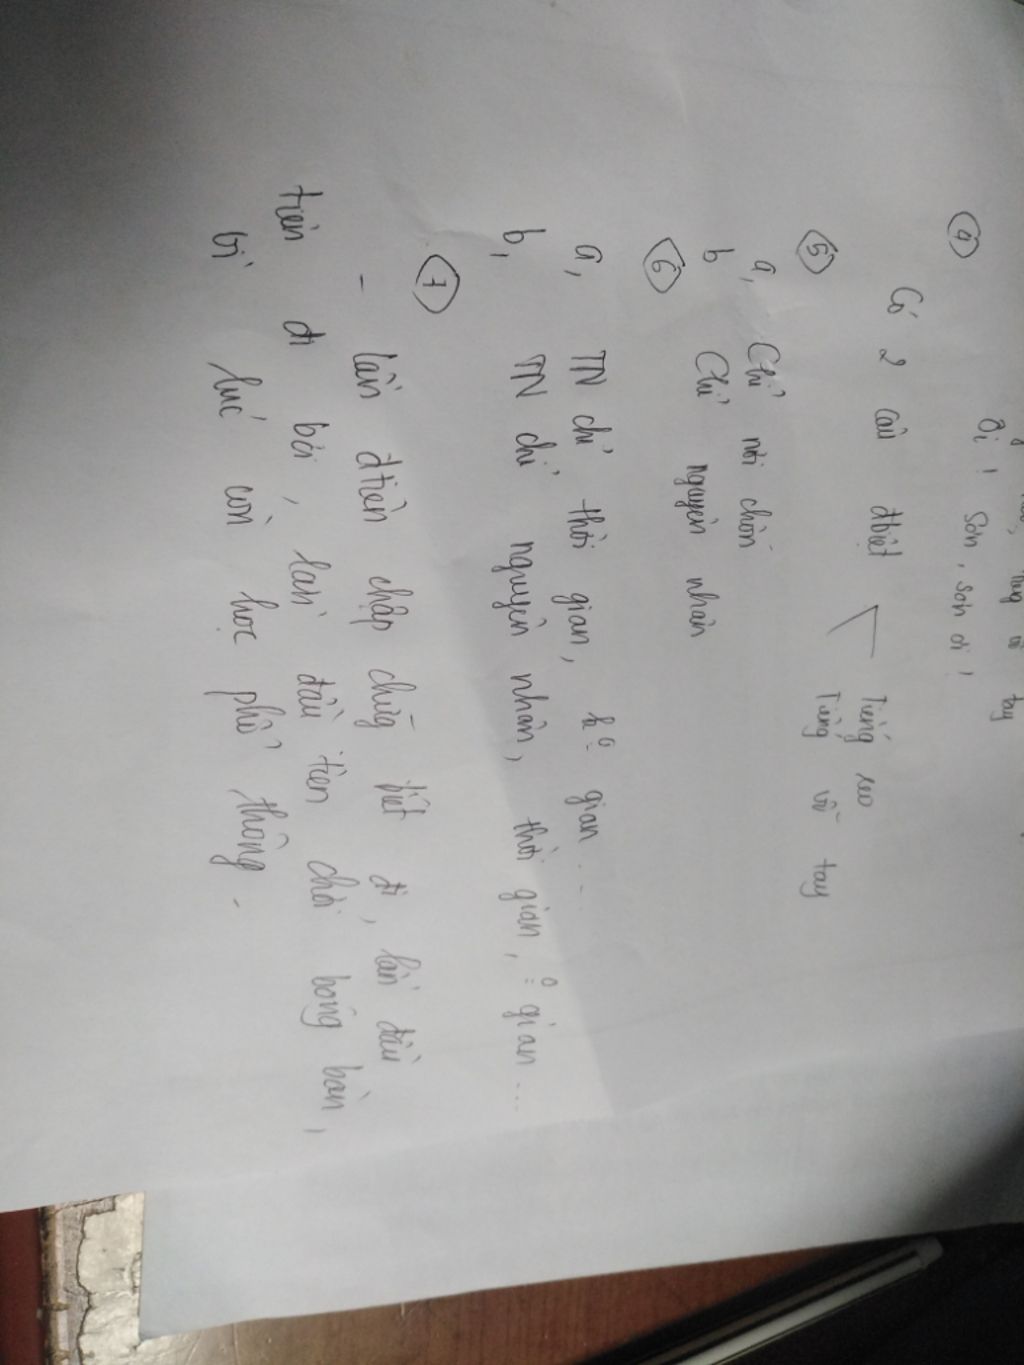 tay
Ối! Sơn, Sơn ơi!
④
Có 2 câu đbiệt
Tiếng reo
Tiếng vỗ tay
⑤
a, Chỉ nơi chốn
b Chỉ nguyên nhân
⑥
a, TN chỉ thời gian, k: gian...
b, TN chỉ nguyên nhân, thời gian, : gian...
⑦
- lần đtiên chập chững biết đi, lần đầu
tiên đi bơi, lần đầu tiên chơi bóng bàn,
lúc còn học phổ thông.